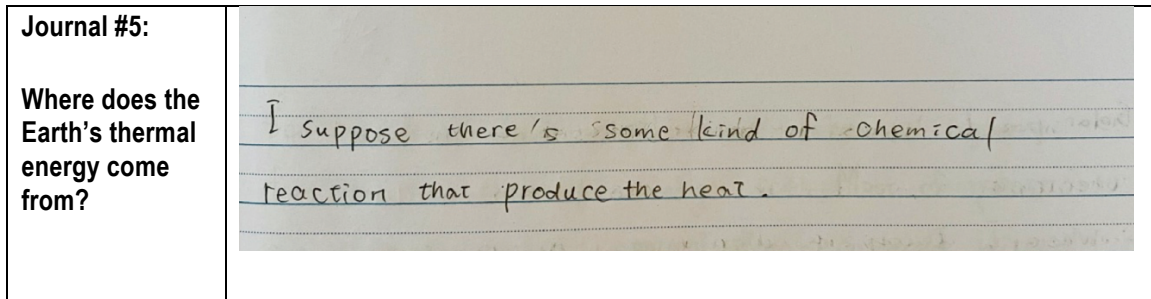 Journal #5:
Where does the
Earth's thermal
energy come
from?
I suppose there's some kind of chemical
reaction that produce the heat.